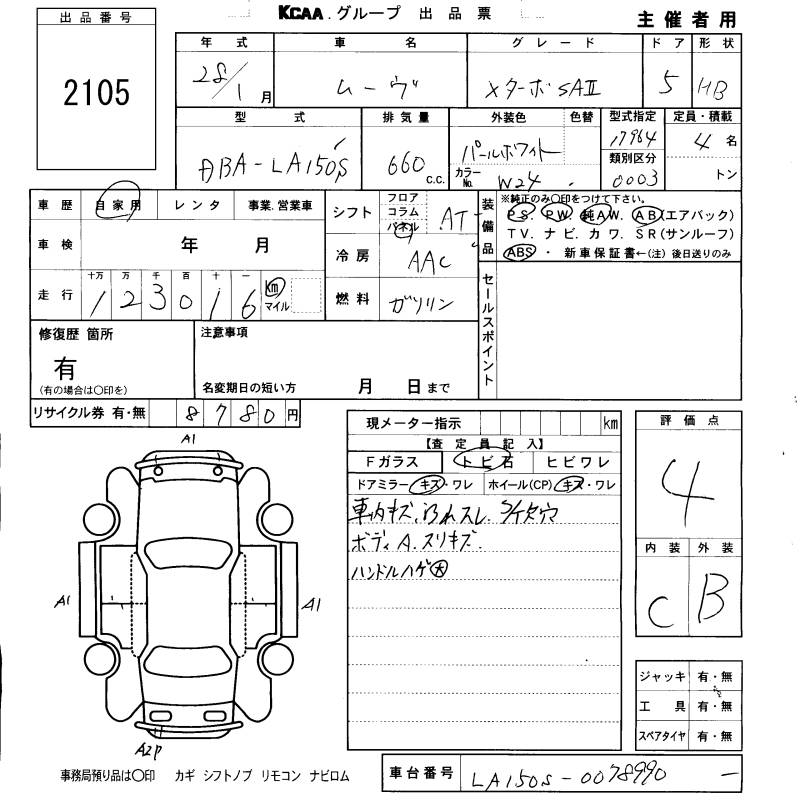 出品番号
2105
KCAA.グループ 出品票
主催者用
年式 車名 グレード ドア 形状
28/1月 ムーヴ XターボSAⅡ 5 HB
型式 排気量 外装色 色替 型式指定 定員・積載
DBA-LA150S 660 c.c. パールホワイト 17964 4名
カラーNo. W24 類別区分 0003 トン
車歴 自家用 レンタ 事業.営業車
シフト フロア コラム パネル AT
装備品 ※純正のみ○印をつけて下さい。
PS. PW. 純AW. AB(エアバック)
TV. ナビ. カワ. SR(サンルーフ)
ABS・新車保証書←(注)後日送りのみ
車検 年 月
冷房 AAC
走行 十万 万 千 百 十 一
123016 Km マイル
燃料 ガソリン
セールスポイント
修復歴 箇所
有
(有の場合は○印を)
注意事項
名変期日の短い方 月 日まで
リサイクル券 有・無 8780円
現メーター指示 km
【査定員記入】
Fガラス トビ石 ヒビワレ
ドアミラー キズ・ワレ ホイール(CP) キズ・ワレ
車内キズ.汚れスレ. シート穴
ボディA.スリキズ.
ハンドルハゲ大
評価点
4
内装 外装
C B
A1
A1
A1
A2P
ジャッキ 有・無
工具 有・無
スペアタイヤ 有・無
事務局預り品は○印 カギ シフトノブ リモコン ナビロム
車台番号 LA150S-0078990